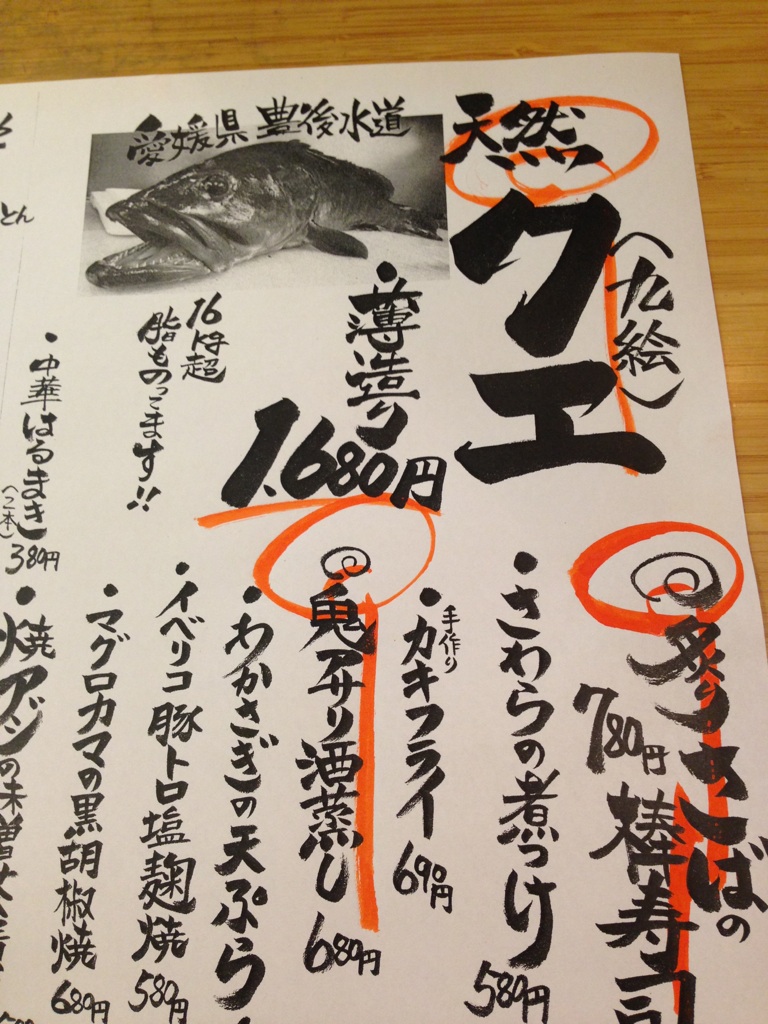 天然
クエ
（九絵）
愛媛県 豊後水道
・薄造り
1,680円
16kg超
脂ものってます!!
炙りさばの
棒寿司
780円
・さわらの煮つけ
580円
・手作り
カキフライ
690円
鬼アサリ酒蒸し
680円
・わかさぎの天ぷら
・イベリコ豚トロ塩麹焼
580円
・マグロカマの黒胡椒焼
680円
・中華はるまき
（2本）
380円
・焼アジの味噌
とん